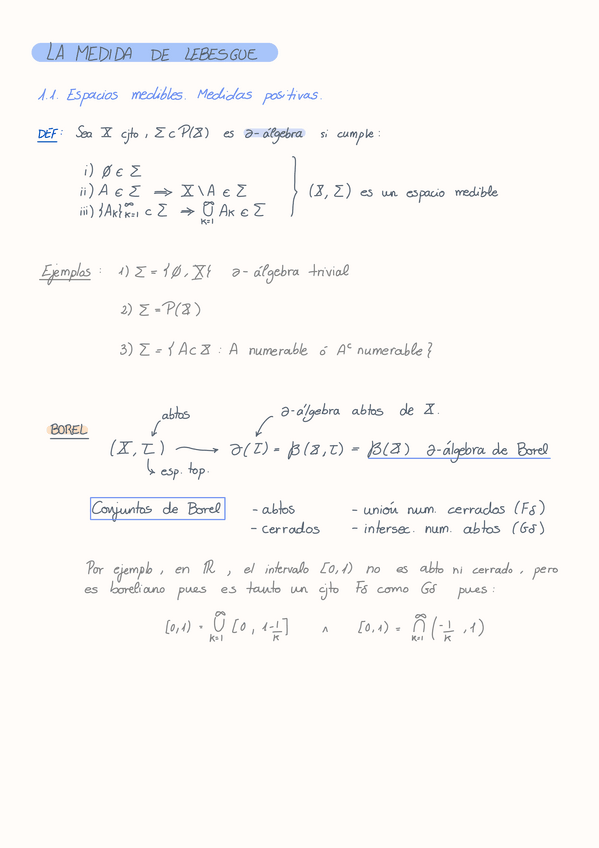 LA MEDIDA DE LEBESGUE
1.1. Espacios medibles. Medidas positivas.
DEF: Sea X cjto, Σ ⊂ P(X) es σ-álgebra si cumple:
i) ∅ ∈ Σ
ii) A ∈ Σ ⇒ X \ A ∈ Σ
iii) {Ak}∞k=1 ⊂ Σ ⇒ ∞⋃k=1 Ak ∈ Σ
} (X, Σ) es un espacio medible
Ejemplos: 1) Σ = {∅, X} σ-álgebra trivial
2) Σ = P(X)
3) Σ = {A ⊂ X : A numerable ó Aᶜ numerable}
abtos
σ-álgebra abtos de X.
BOREL
(X, τ) → σ(τ) = β(X, τ) = β(X) σ-álgebra de Borel
↳ esp. top.
Conjuntos de Borel - abtos - unión num. cerrados (Fδ)
- cerrados - intersec. num. abtos (Gδ)
Por ejemplo, en ℝ, el intervalo [0,1) no es abto ni cerrado, pero
es boreliano pues es tanto un cjto Fδ como Gδ pues:
[0,1) = ∞⋃k=1 [0, 1-1/k] ∧ [0,1) = ∞⋂k=1 (-1/k, 1)